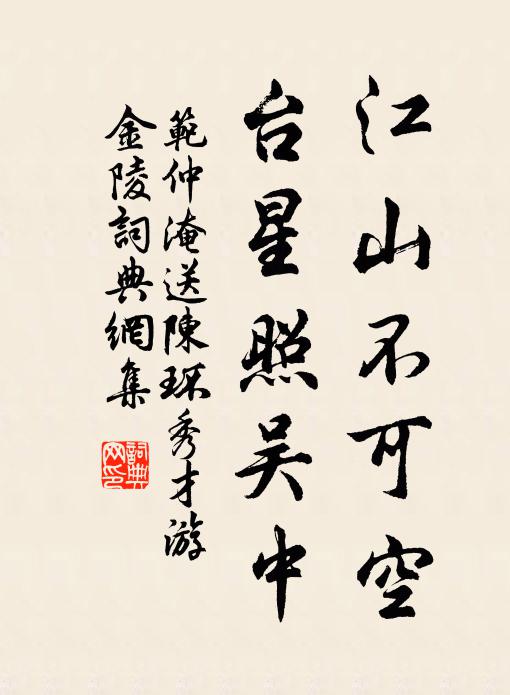 江山不可空
台星照吴中
範仲淹送陳琢秀才游
金陵詞典網集
詞典网印